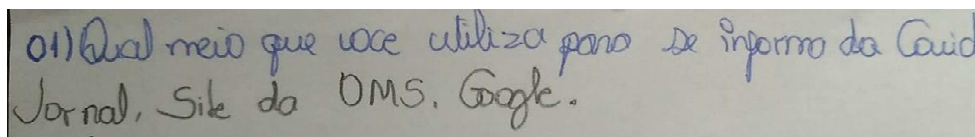 01) Qual meio que voce utiliza para se informa da Covid
Jornal, Site da OMS. Google.